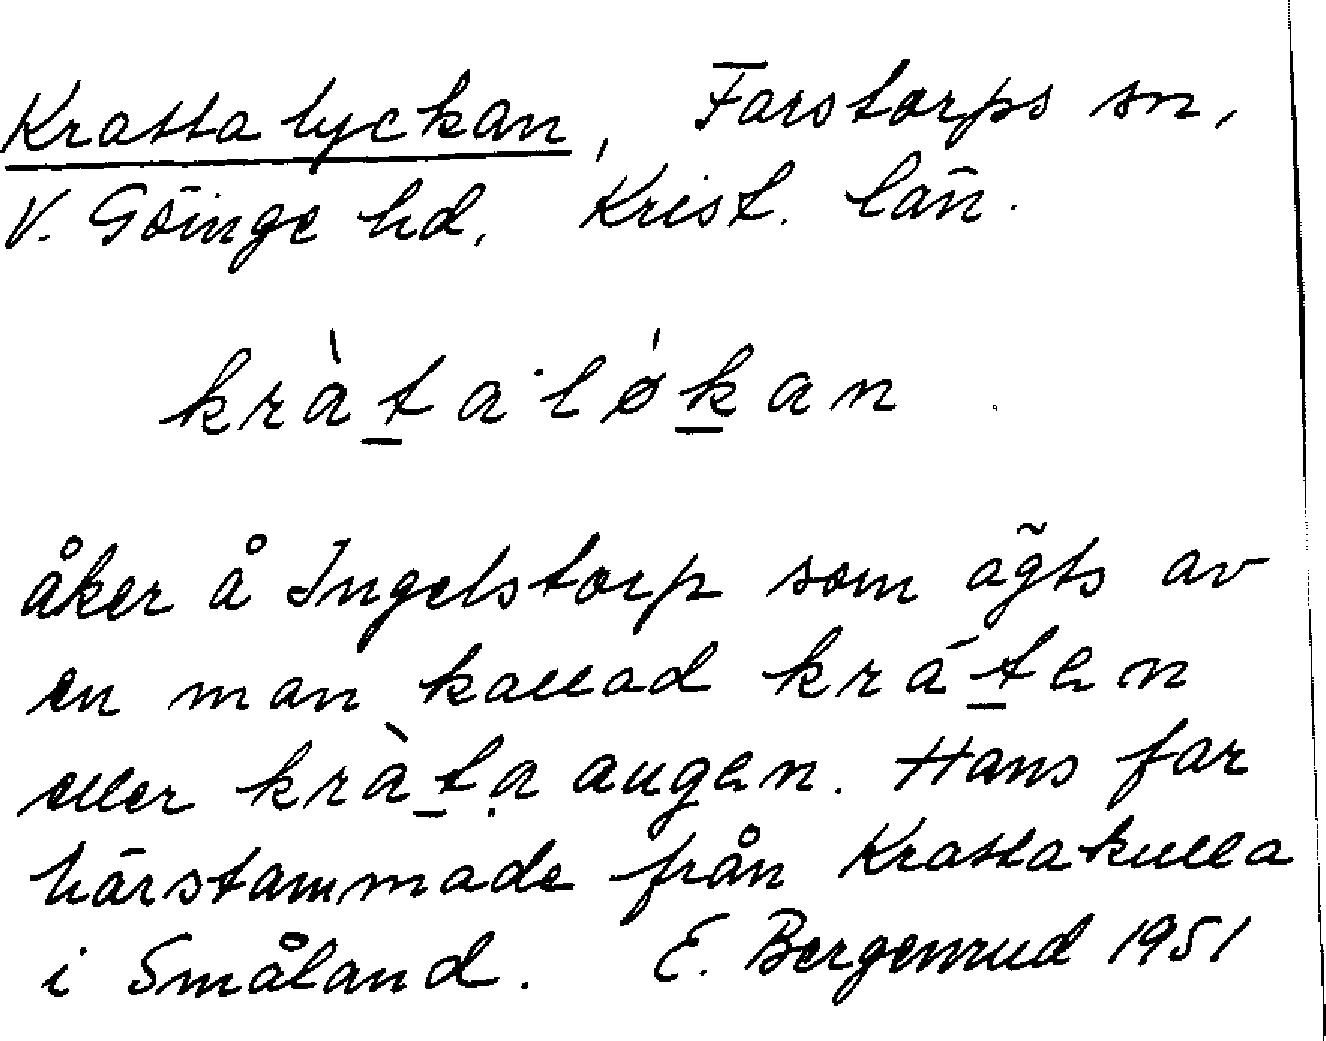 Krattalyckan, Farstorps sn,
V. Göinge hd, Krist. län.
kràta·løkan
åker å Ingelstorp som ägts av
en man kallad kráten
eller kràta augen. Hans far
härstammade från Krattakulla
i Småland. E. Bergenrud 1951